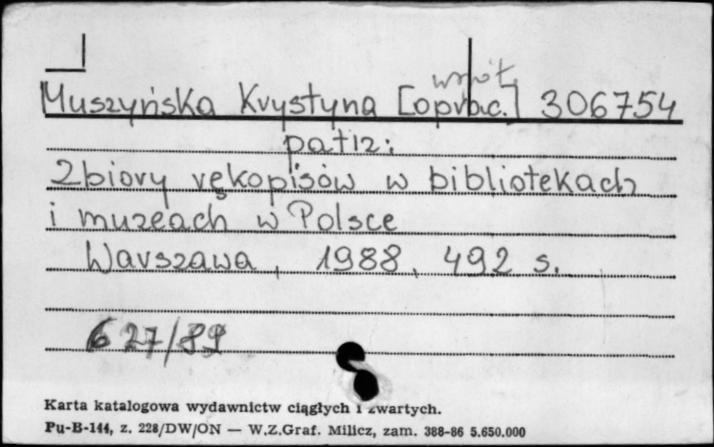 współ.
Muszyńska Krystyna [oprac.] 306754
patrz:
Zbiory rękopisów w bibliotekach
i muzeach w Polsce
Warszawa, 1988, 492 s.
627/89
Karta katalogowa wydawnictw ciągłych i zwartych.
Pu-B-144, z. 228/DW/ON — W.Z.Graf. Milicz, zam. 388-86 5.650.000